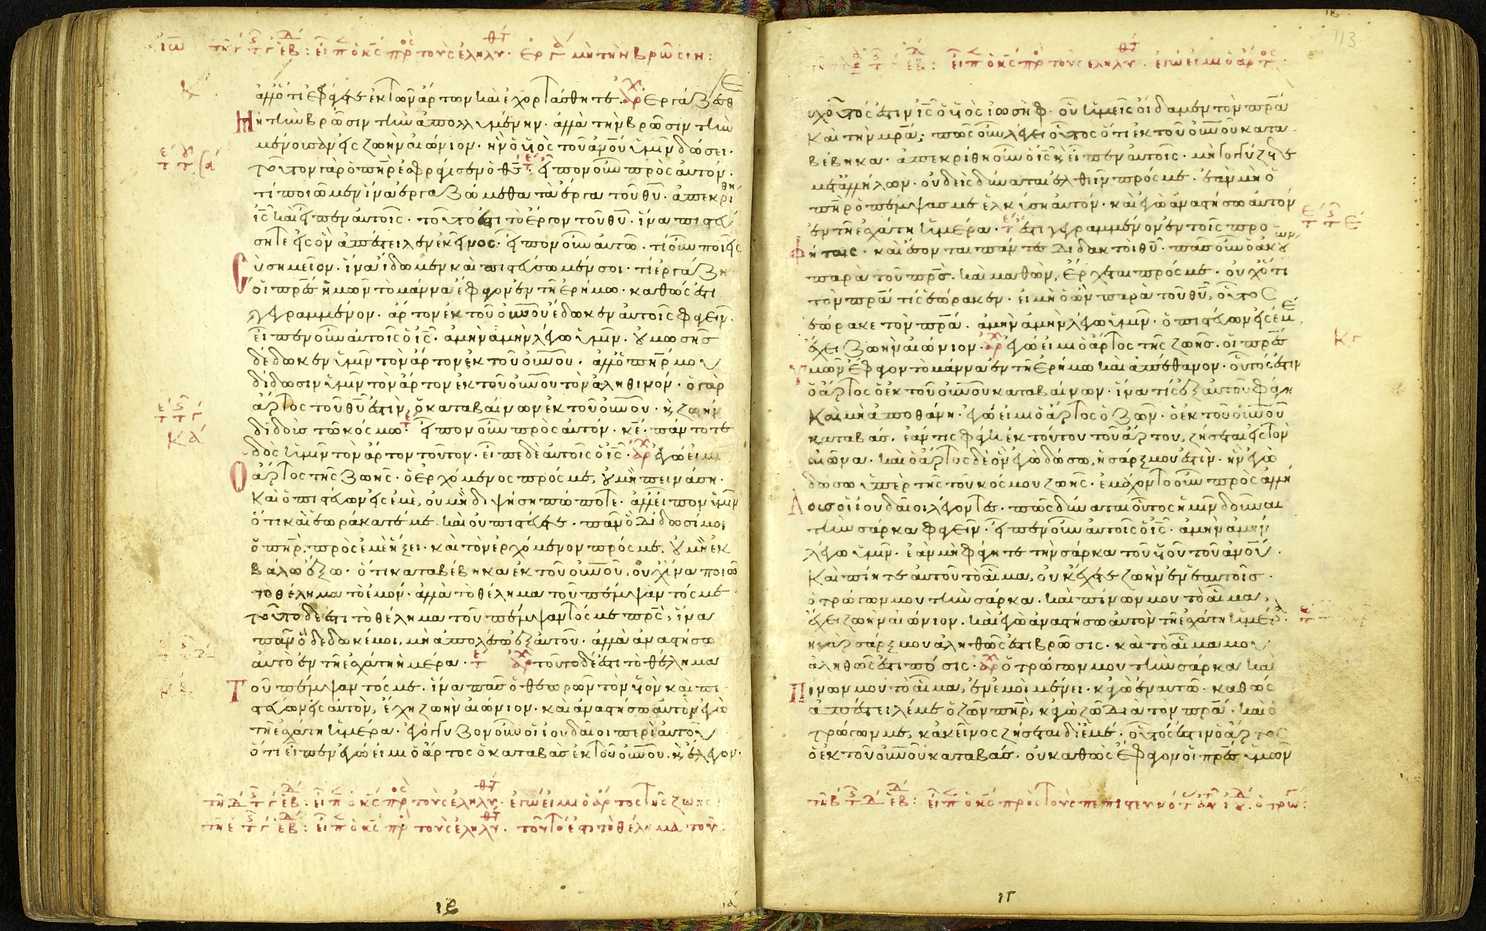 ἀλλ' ὅτι ἐφάγετε ἐκ τῶν ἄρτων καὶ ἐχορτάσθητε· ἐργάζεσθ
μὴ τὴν βρῶσιν τὴν ἀπολλυμένην· ἀλλὰ τὴν βρῶσιν τὴν
μένουσαν εἰς ζωὴν αἰώνιον· ἣν ὁ υἱὸς τοῦ ἀνου ὑμῖν δώσει·
τοῦτον γὰρ ὁ πηρ ἐσφράγισεν ὁ θς· εἶπον οὖν πρὸς αὐτόν·
τί ποιῶμεν ἵνα ἐργαζώμεθα τὰ ἔργα τοῦ θυ· ἀπεκρίθη
ις καὶ εἶπεν αὐτοῖς· τοῦτό ἐστι τὸ ἔργον τοῦ θυ· ἵνα πιστεύ
σητε εἰς ὃν ἀπέστειλεν ἐκεῖνος· εἶπον οὖν αὐτῶ· τί οὖν ποιεῖς
σὺ σημεῖον· ἵνα ἴδωμεν καὶ πιστεύσωμέν σοι· τί ἐργάζη
οἱ πρες ἡμῶν τὸ μάννα ἔφαγον ἐν τῆ ἐρήμω· καθώς ἐστι
γεγραμμένον· ἄρτον ἐκ τοῦ οὐνου ἔδωκεν αὐτοῖς φαγεῖν·
εἶπεν οὖν αὐτοῖς ὁ ις· ἀμὴν ἀμὴν λέγω ὑμῖν· οὐ μωσῆς
δέδωκεν ὑμῖν τὸν ἄρτον ἐκ τοῦ οὐνου· ἀλλ' ὁ πηρ μου
δίδωσιν ὑμῖν τὸν ἄρτον ἐκ τοῦ οὐνου τὸν ἀληθινόν· ὁ γὰρ
ἄρτος τοῦ θυ ἐστὶν, ὁ καταβαίνων ἐκ τοῦ οὐνου· κ ζωὴν
διδοὺς τῶ κόσμω· εἶπον οὖν πρὸς αὐτόν· κε· πάντοτε
δὸς ἡμῖν τὸν ἄρτον τοῦτον· εἶπε δὲ αὐτοῖς ὁ ις· ἐγώ εἰμι
ὁ ἄρτος τῆς ζωῆς· ὁ ἐρχόμενος πρός με, οὐ μὴ πεινάση·
καὶ ὁ πιστεύων εἰς ἐμὲ, οὐ μὴ διψήση πώποτε· ἀλλ' εἶπον ὑμῖν
ὅτι καὶ ἑωράκατέ με· καὶ οὐ πιστεύετε· πᾶν ὃ δίδωσί μοι
ὁ πηρ, πρὸς ἐμὲ ἥξει· καὶ τὸν ἐρχόμενον πρός με, οὐ μὴ ἐκ
βάλω ἔξω· ὅτι καταβέβηκα ἐκ τοῦ οὐνου, οὐχ ἵνα ποιῶ
τὸ θέλημα τὸ ἐμόν· ἀλλὰ τὸ θέλημα τοῦ πέμψαντός με·
τοῦτο δέ ἐστι τὸ θέλημα τοῦ πέμψαντός με πρς, ἵνα
πᾶν ὃ δέδωκέ μοι, μὴ ἀπολέσω ἐξ αὐτοῦ· ἀλλὰ ἀναστήσω
αὐτὸ ἐν τῆ ἐσχάτη ἡμέρα· τοῦτο δέ ἐστι τὸ θέλημα
τοῦ πέμψαντός με· ἵνα πᾶς ὁ θεωρῶν τὸν υἱὸν καὶ πι
στεύων εἰς αὐτὸν, ἔχη ζωὴν αἰώνιον· καὶ ἀναστήσω αὐτὸν ἐγὼ
τῆ ἐσχάτη ἡμέρα· ἐγόγγυζον οὖν οἱ ἰουδαῖοι περὶ αὐτοῦ
ὅτι εἶπεν ἐγώ εἰμι ὁ ἄρτος ὁ καταβὰς ἐκ τοῦ οὐνου· κ ἔλεγον·
ιε
οὐχ οὗτός ἐστιν ις ὁ υἱὸς ἰωσήφ· οὗ ἡμεῖς οἴδαμεν τὸν πρα
καὶ τὴν μρα; πῶς οὖν λέγει οὗτος ὅτι ἐκ τοῦ οὐνου κατα
βέβηκα· ἀπεκρίθη οὖν ὁ ις κ εἶπεν αὐτοῖς· μὴ γογγύζετε
μετ' ἀλλήλων· οὐδεὶς δύναται ἐλθεῖν πρός με· ἐὰν μὴ ὁ
πηρ ὁ πέμψας με ἑλκύση αὐτόν· καὶ ἐγὼ ἀναστήσω αὐτὸν
ἐν τῆ ἐσχάτη ἡμέρα· ἔστι γεγραμμένον ἐν τοῖς προ
φήταις· καὶ ἔσονται πάντες διδακτοὶ θυ· πᾶς οὖν ὁ ἀκούων
παρὰ τοῦ πρς· καὶ μαθὼν, ἔρχεται πρός με· οὐχ ὅτι
τὸν πρα τίς ἑώρακεν· εἰ μὴ ὁ ὢν παρὰ τοῦ θυ, οὗτος
ἑώρακε τὸν πρα· ἀμὴν ἀμὴν λέγω ὑμῖν· ὁ πιστεύων εἰς ἐμὲ
ἔχει ζωὴν αἰώνιον· ἐγώ εἰμι ὁ ἄρτος τῆς ζωῆς· οἱ πρες
ὑμῶν ἔφαγον τὸ μάννα ἐν τῆ ἐρήμω καὶ ἀπέθανον· οὗτός ἐστιν
ὁ ἄρτος ὁ ἐκ τοῦ οὐνου καταβαίνων· ἵνα τίς ἐξ αὐτοῦ φάγη
καὶ μὴ ἀποθάνη· ἐγώ εἰμι ὁ ἄρτος ὁ ζῶν· ὁ ἐκ τοῦ οὐνου
καταβάς· ἐάν τις φάγη ἐκ τούτου τοῦ ἄρτου, ζήσεται εἰς τὸν
αἰῶνα· καὶ ὁ ἄρτος δὲ ὃν ἐγὼ δώσω, ἡ σάρξ μου ἐστὶν· ἣν ἐγὼ
δώσω ὑπὲρ τῆς τοῦ κόσμου ζωῆς· ἐμάχοντο οὖν πρὸς ἀλλή
λους οἱ ἰουδαῖοι λέγοντες· πῶς δύναται οὗτος ἡμῖν δοῦναι
τὴν σάρκα φαγεῖν· εἶπεν οὖν αὐτοῖς ὁ ις· ἀμὴν ἀμὴν
λέγω ὑμῖν· ἐὰν μὴ φάγητε τὴν σάρκα τοῦ υἱοῦ τοῦ ἀνου·
καὶ πίητε αὐτοῦ τὸ αἷμα, οὐκ ἔχετε ζωὴν ἐν ἑαυτοῖς·
ὁ τρώγων μου τὴν σάρκα· καὶ πίνων μου τὸ αἷμα,
ἔχει ζωὴν αἰώνιον· καὶ ἐγὼ ἀναστήσω αὐτὸν τῆ ἐσχάτη ἡμέρα·
ἡ γὰρ σάρξ μου ἀληθῶς ἐστι βρῶσις· καὶ τὸ αἷμα μου
ἀληθῶς ἐστι πόσις· ὁ τρώγων μου τὴν σάρκα καὶ
πίνων μου τὸ αἷμα, ἐν ἐμοὶ μένει· κἀγὼ ἐν αὐτῶ· καθὼς
ἀπέστειλέ με ὁ ζῶν πηρ, κἀγὼ ζῶ διὰ τὸν πρα· καὶ ὁ
τρώγων με, κἀκεῖνος ζήσεται δι' ἐμέ· οὗτός ἐστιν ὁ ἄρτος
ὁ ἐκ τοῦ οὐνου καταβάς· οὐ καθὼς ἔφαγον οἱ πρες ὑμῶν
113